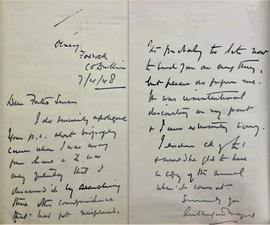 Olney,
Foxrock
Co Dublin
7/4/48
Dear Father Senan
I do sincerely apologise
Your p.c. about biography
came when I was away
from home & I was
only yesterday that I
discovered it by searching
thru other correspondence
that had not
It's probably too late now
to send you on anything
but please do forgive me.
It was unintentional
discourtesy on my part
& I am extremely sorry.
I enclose
would be glad to have
a copy of the annual
when it comes out
Sincerely yrs